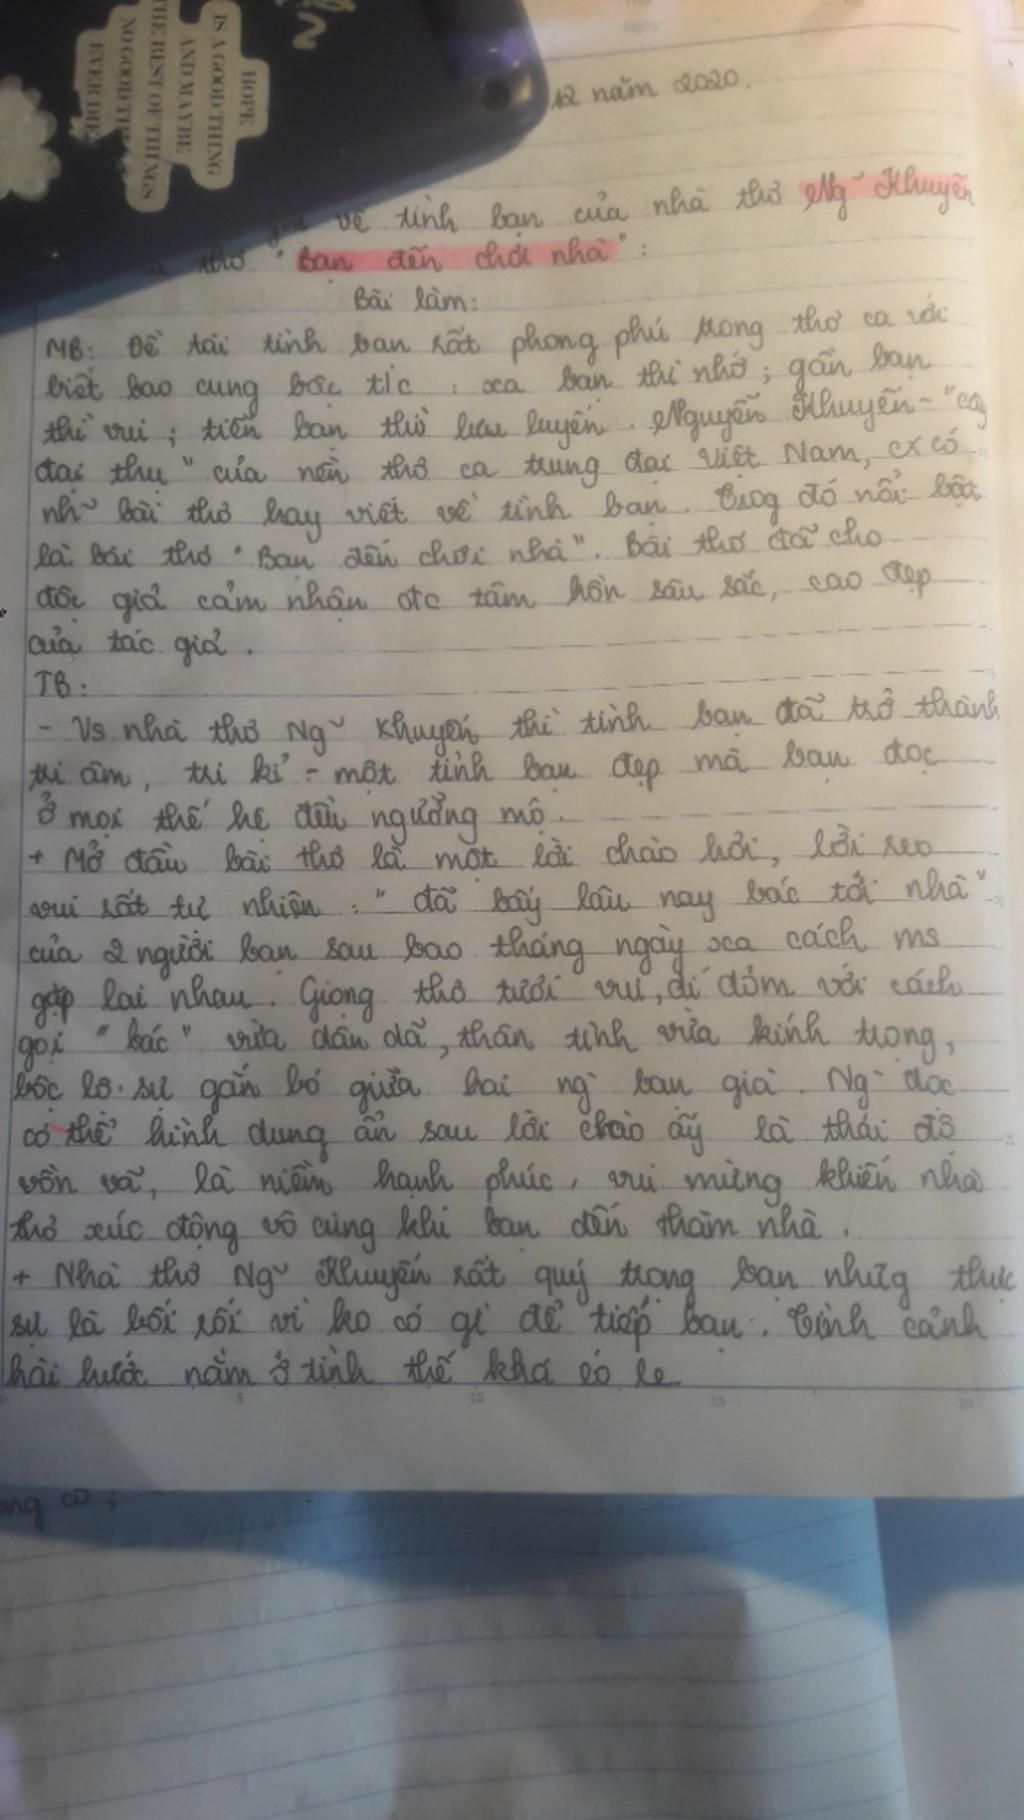 HOPE
IS A GOOD THING
AND MAYBE
THE BEST OF THINGS
NO GOOD
EVER DIE
2
12 năm 2020.
về tình bạn của nhà thơ Ng~ Khuyến
thơ "Bạn đến chơi nhà":
Bài làm:
MB: Đề tài tình bạn rất phong phú trong thơ ca với
biết bao cung bậc t/c : xa bạn thì nhớ; gần bạn
thì vui; tiễn bạn thì lưu luyến. Nguyễn Khuyến - "cây
đại thụ" của nền thơ ca trung đại Việt Nam, cx có
nh~ bài thơ hay viết về tình bạn. Trog đó nổi bật
là bài thơ "Bạn đến chơi nhà". Bài thơ đã cho
độc giả cảm nhận đtc tâm hồn sâu sắc, cao đẹp
của tác giả.
TB:
- Vs nhà thơ Ng~ Khuyến thì tình bạn đã trở thành
tri âm, tri kỉ - một tình bạn đẹp mà bạn đọc
ở mọi thế hệ đều ngưỡng mộ.
+ Mở đầu bài thơ là một lời chào hỏi, lời reo
vui rất tự nhiên : "đã bấy lâu nay bác tới nhà"
của 2 người bạn sau bao tháng ngày xa cách ms
gặp lại nhau. Giọng thơ tươi vui, dí dỏm với cách
gọi "bác" vừa dân dã, thân tình vừa kính trọng,
bộc lộ sự gắn bó giữa hai ng` bạn già. Ng` đọc
có thể hình dung ẩn sau lời chào ấy là thái độ
vồn vã, là niềm hạnh phúc, vui mừng khiến nhà
thơ xúc động vô cùng khi bạn đến thăm nhà.
+ Nhà thơ Ng~ Khuyến rất quý trọng bạn nhưg thực
sự là bối rối vì ko có gì để tiếp bạn. Tình cảnh
hài hước nằm ở tình thế khá éo le
5 10 15 20